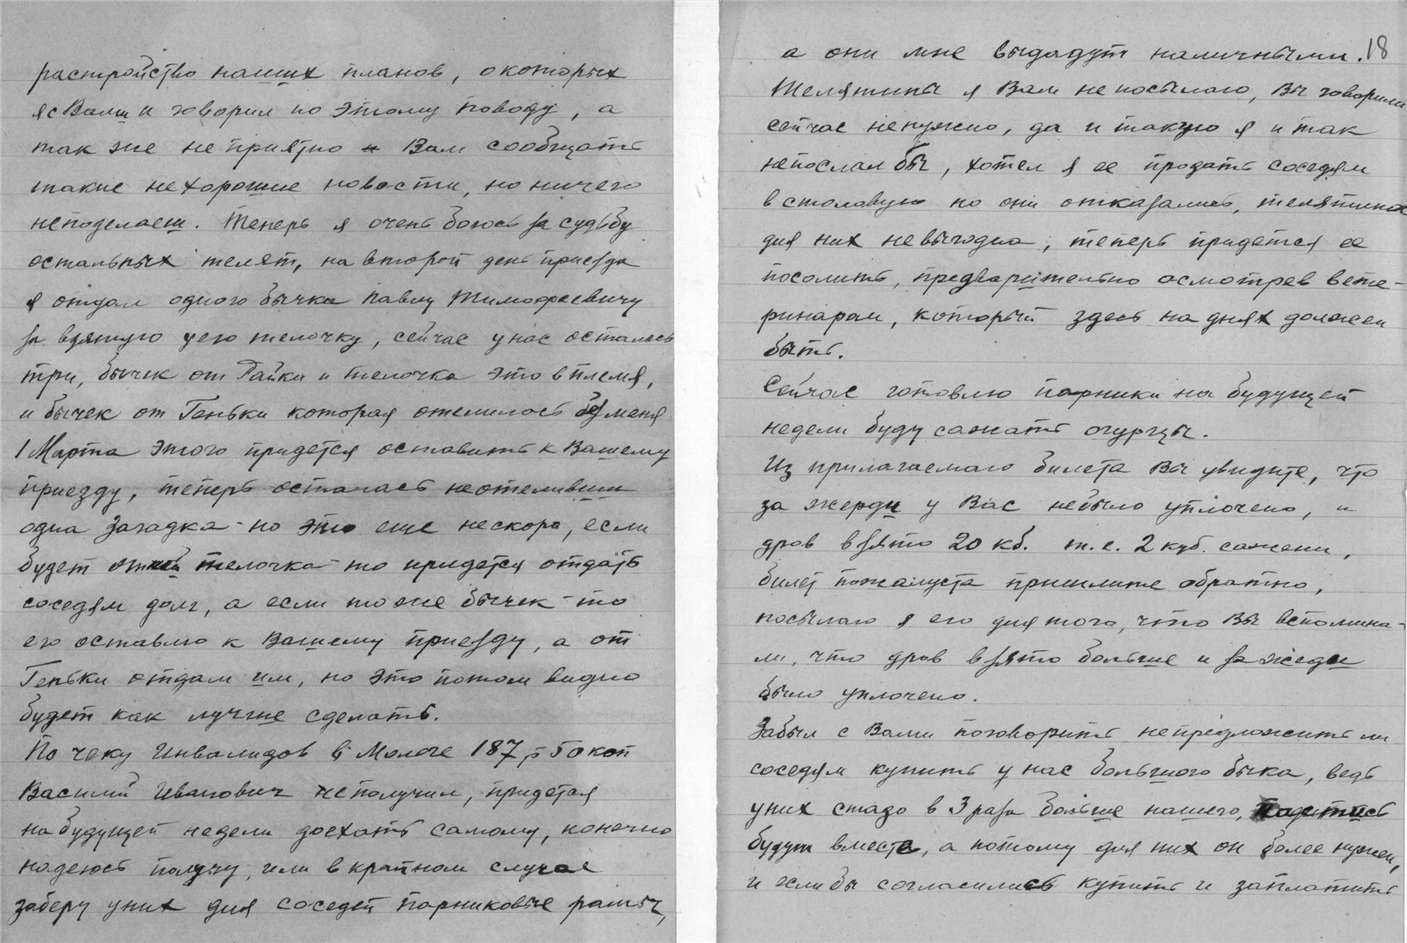 растройство наших планов, о которых
я с Вами и говорил по этому поводу, а
так же не приятно и Вам сообщать
такие не хорошие новости, но ничего
неподелаеш. Теперь я очень боюсь за судьбу
остальных телят, на второй день приезда
я отдал одного бычка Павлу Тимофеевичу
за взятую у его телочку, сейчас у нас осталось
три, бычек от Гайки и телочка это в племя,
и бычек от Геньки которая отелилась без меня
1 Марта этого придется оставить к Вашему
приезду, теперь осталась неотеливши
одна Загадка - но это еще нескоро, если
будет от ней телочка - то придется отдать
соседям долг, а если то же бычек - то
его оставлю к Вашему приезду, а от
Геньки отдам им, но это потом видно
будет как лучше сделать.
По чеку Инвалидов в Мологе 187 р 50 коп
Василий Иванович неполучил, придется
на будущей недели доехать самому, конечно
надеюсь получу, или в крайнем случае
заберу у них для соседей парниковые рамы,
а они мне выдадут наличными. 18
Телятины я Вам не посылаю, Вы говорили
сейчас ненужно, да и такую я и так
непослал бы, хотел я ее продать соседям
в столовую но они отказались, телятина
для них невыгодна, теперь придется ее
посолить, предварительно осмотрев вете-
ринаром, который здесь на днях должен
быть.
Сейчас готовлю парники на будущей
недели буду сажать огурцы.
Из прилагаемого билета Вы увидите, что
за жерди у Вас небыло уплочено, и
дров взято 20 кб. т.е. 2 куб. сажени,
билет пожалуста пришлите обратно,
посылаю я его для того, что Вы вспомина-
ли, что дров взято больше и за жерди
было уплочено.
Забыл с Вами поговорить непредложить ли
соседям купить у нас большого быка, ведь
у них стадо в 3 раза больше нашего, пастись
будут вместе, а потому для них он более нужен,
и если бы согласились купить и заплатить